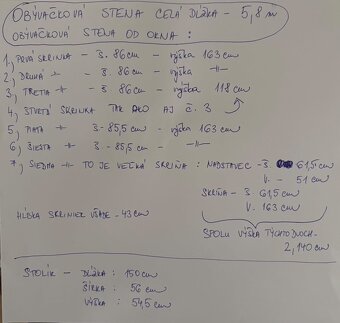 OBÝVAČKOVÁ STENA CELÁ DĹŽKA - 5,8 m
OBÝVAČKOVÁ STENA OD OKNA :
1, PRVÁ SKRINKA - š. 86cm - výška 163 cm
2, DRUHÁ -11- - š. 86cm - výška -11-
3, TRETIA -11- - š. 86cm - výška 118 cm
4, ŠTVRTÁ SKRINKA TAK AKO AJ č. 3
5, PIATA -11- š - 85,5 cm - výška 163 cm
6, ŠIESTA -11- š - 85,5 cm - -11-
7, SIEDMA -11- TO JE VEĽKÁ SKRIŇA : NADSTAVEC - š. 61,5 cm
V. - 51 cm
SKRIŇA - š 61,5 cm
V. 163 cm
HĹBKA SKRINIEK VŠADE - 43 cm
SPOLU VÝŠKA TÝCHTO DVOCH -
2,140 cm
STOLÍK - DĹŽKA : 150 cm
ŠÍRKA : 56 cm
VÝŠKA : 54,5 cm